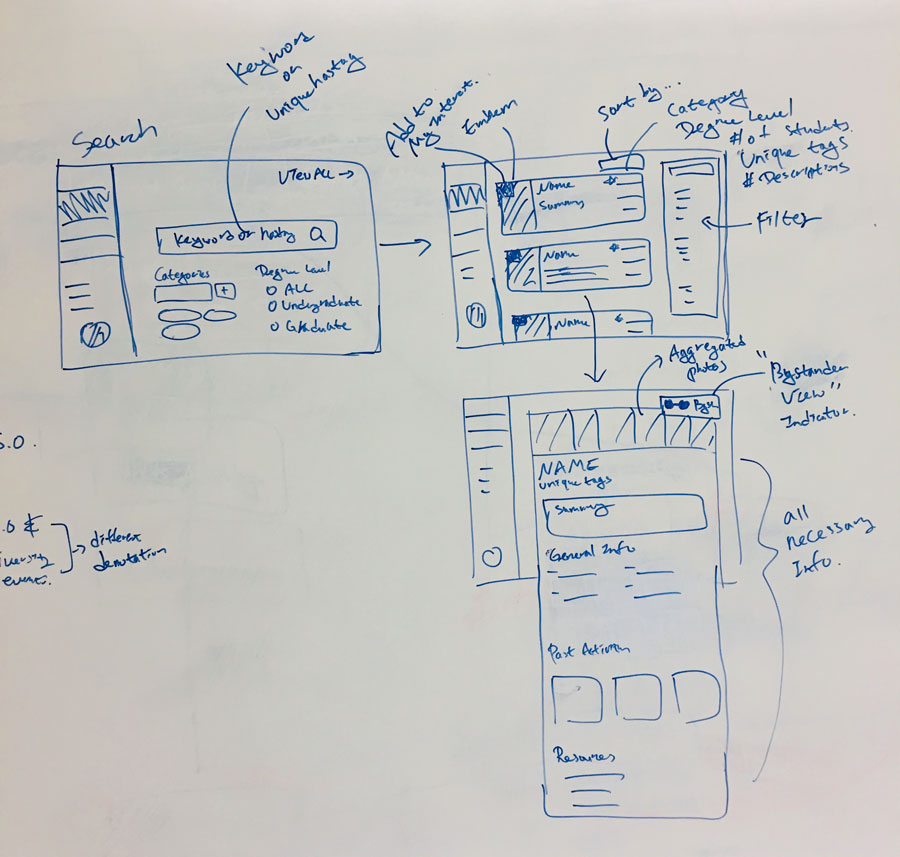 Search
Keyword
or
unique hastag
View ALL →
Keyword or hastag
Categories
+
Degree Level
ALL
Undergraduate
Graduate
Add to
My interest.
Emblem
Sort by...
Category
Degree Level
# of students
Unique tags
# Descriptions
Name
Summary
Name
Name
Filter
Aggregated
photos
"Bystander
View"
Indicator.
Bys
NAME
unique tags
Summary
General Info
Past Activities
Resources
all
necessary
Info.
S.O.
.O &
event.
different